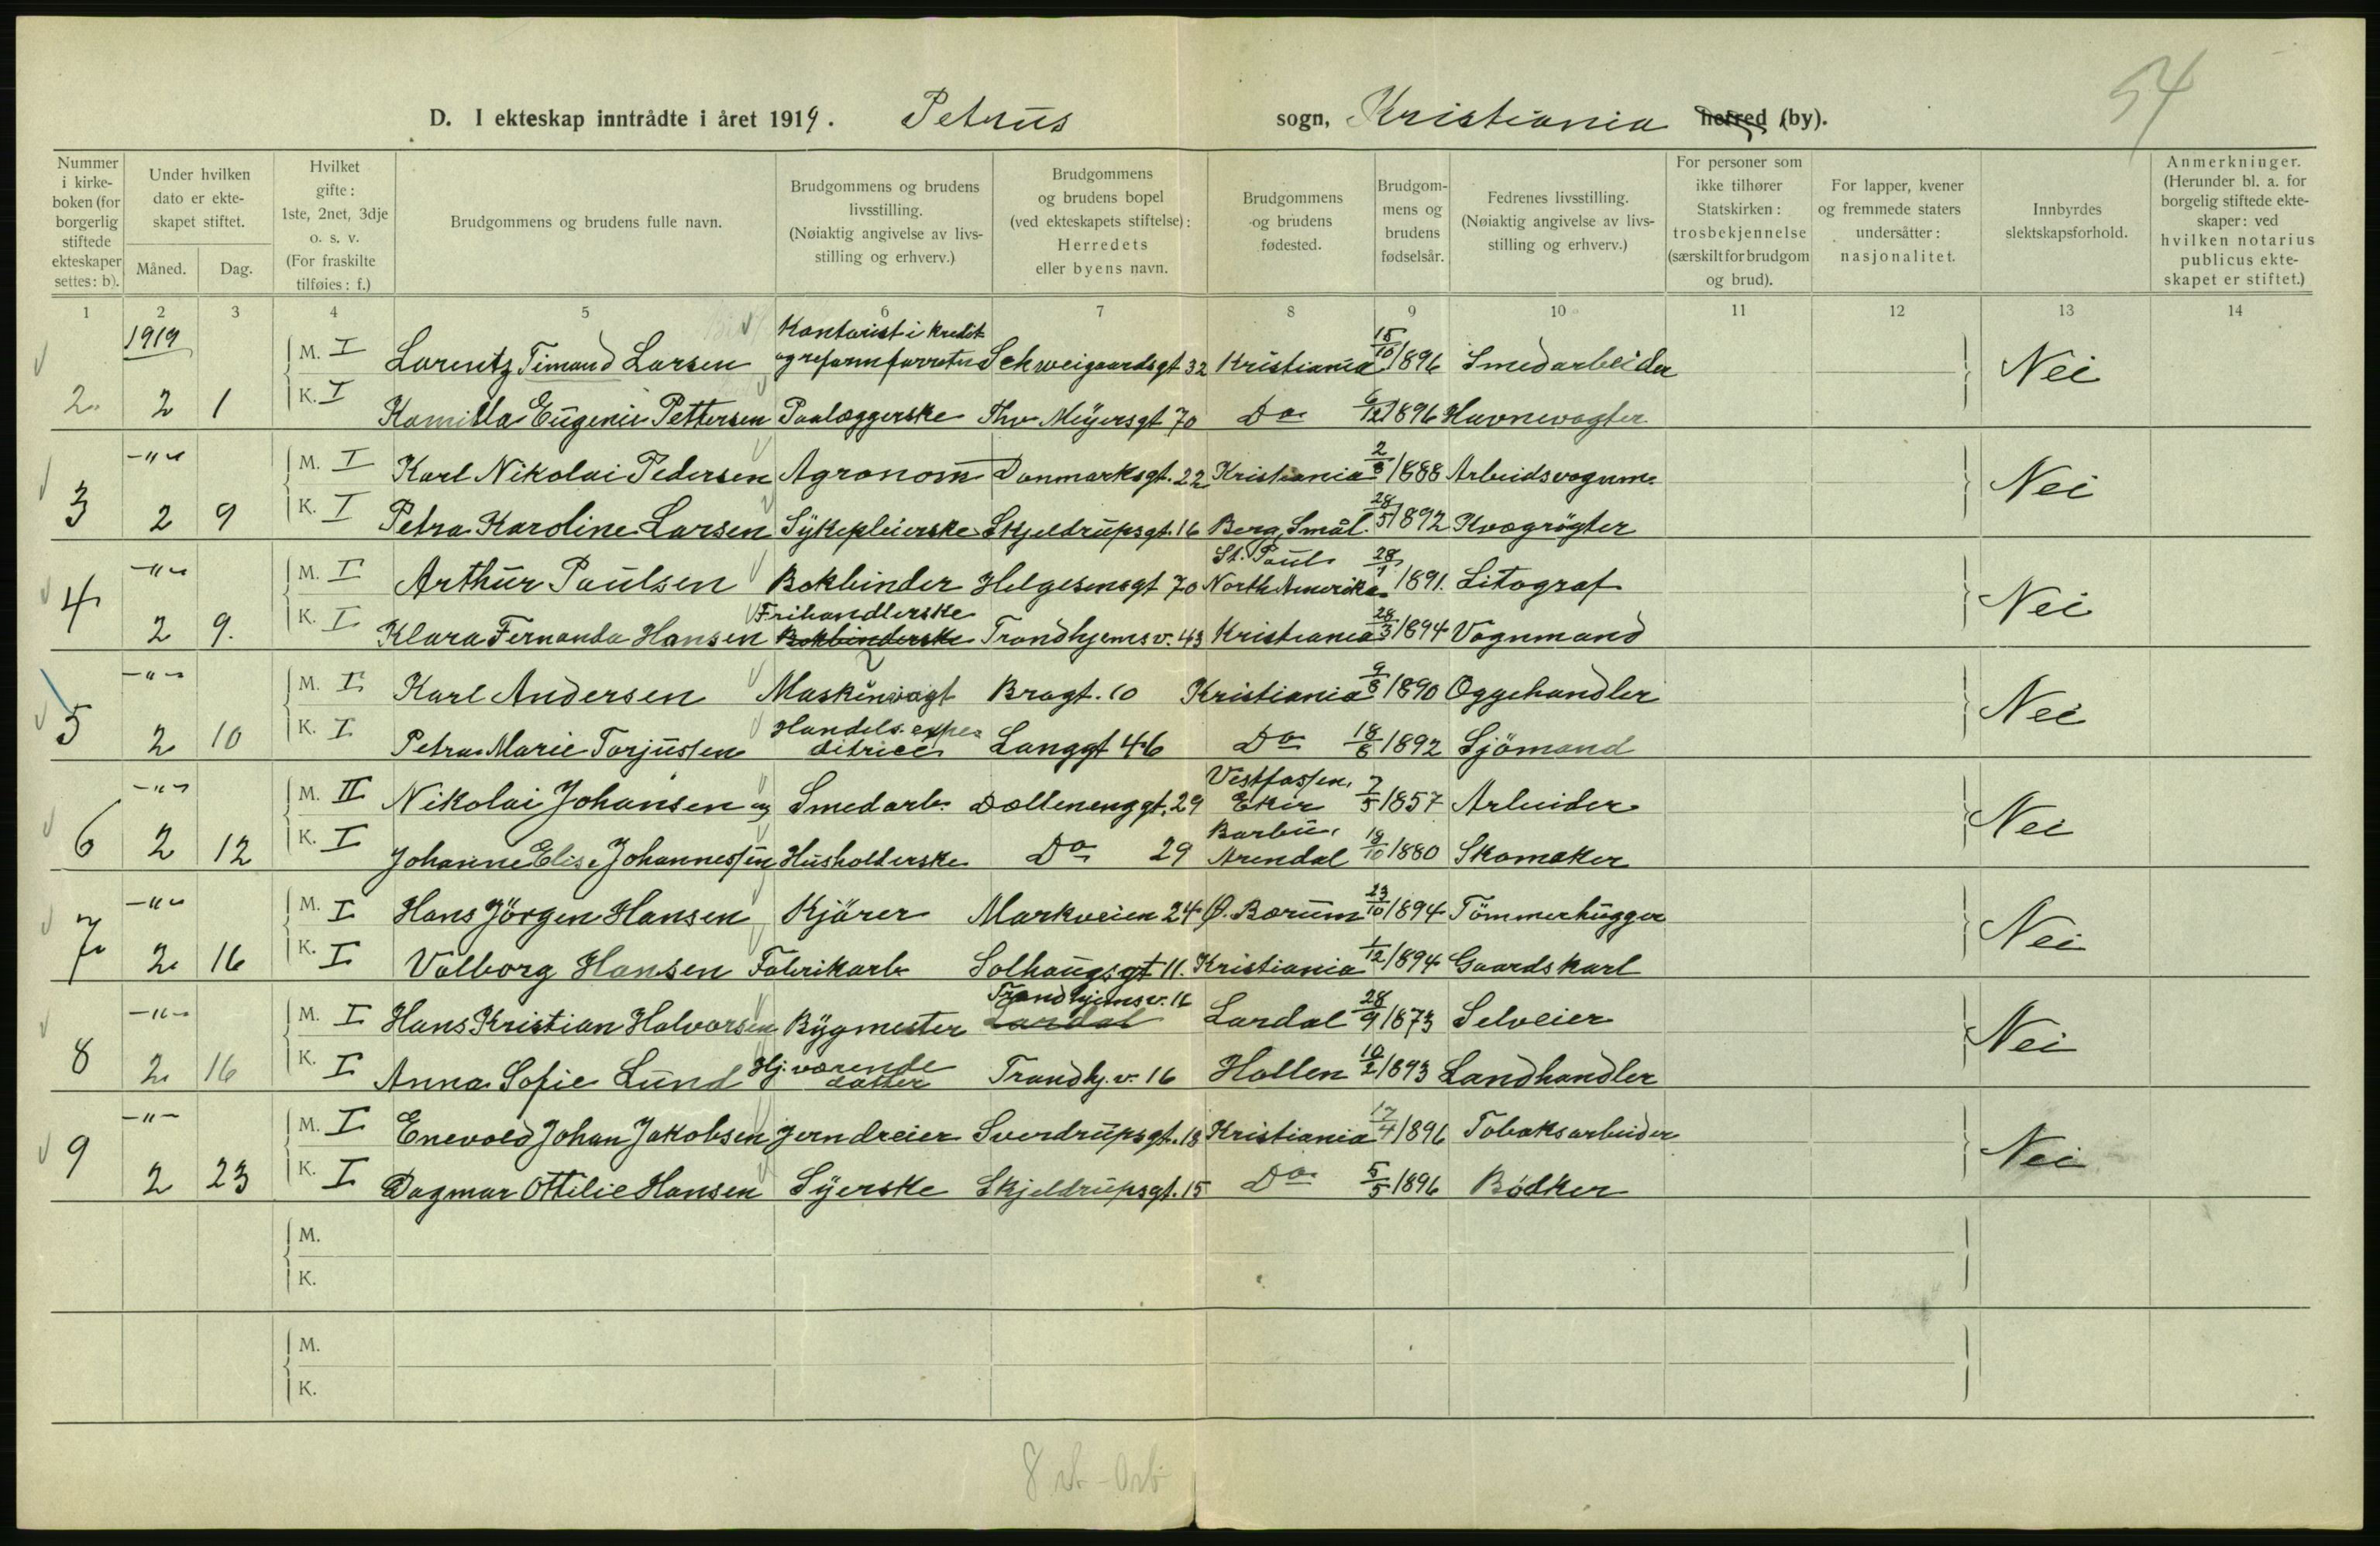 54
D. I ekteskap inntrådte i året 1919. Petrus sogn, Kristiania herred (by).
Nummer i kirkeboken (for borgerlig stiftede ekteskaper settes: b).
Under hvilken dato er ekteskapet stiftet.
Måned. Dag.
Hvilket gifte: 1ste, 2net, 3dje o. s. v. (For fraskilte tilføies: f.)
Brudgommens og brudens fulle navn.
Brudgommens og brudens livsstilling. (Nøiaktig angivelse av livsstilling og erhverv.)
Brudgommens og brudens bopel (ved ekteskapets stiftelse): Herredets eller byens navn.
Brudgommens og brudens fødested.
Brudgommens og brudens fødselsår.
Fedrenes livsstilling. (Nøiaktig angivelse av livsstilling og erhverv.)
For personer som ikke tilhører Statskirken: trosbekjennelse (særskilt for brudgom og brud).
For lapper, kvener og fremmede staters undersåtter: nasjonalitet.
Innbyrdes slektskapsforhold.
Anmerkninger. (Herunder bl. a. for borgelig stiftede ekteskaper: ved hvilken notarius publicus ekteskapet er stiftet.)
1 2 3 4 5 6 7 8 9 10 11 12 13 14
1919 M. I Lorentz Timand Larsen Kontorist i kredit og reformforretn Schweigaardsgt 32 Kristiania 15/10 1896 Smedarbeider Nei
2 2 1 K. I Kamilla Eugenie Pettersen Paalæggerske Thv. Meyersgt 70 Do 6/12 1896 Havnevogter
-"- M. I Karl Nikolai Pedersen Agronom Danmarksgt. 22 Kristiania 2/8 1888 Arbeidsvognm. Nei
3 2 9 K. I Petra Karoline Larsen Sykepleierske Skjeldrupsgt. 16 Berg, Smål. 28/5 1892 Kvægrøgter
-"- M. I Arthur Paulsen Bokbinder Helgesensgt 70 St. Paul North Amerika 28/1 1891. Litograf Nei
4 2 9. K. I Klara Fernanda Hansen Frihandlerske Bokbinderske Trondhjemsv. 43 Kristiania 28/3 1894 Vognmand
-"- M. I Karl Andersen Maskinvagt Bragt. 10 Kristiania 9/8 1890 Oggehandler Nei
5 2 10 K. I Petra Marie Torjussen Handels. expeditrice Langgt 46 Do 18/8 1892 Sjömand
-"- M. II Nikolai Johansen Smedarb. Dælenenggt. 29 Vestfossen, Eker 7/5 1857 Arbeider Nei
6 2 12 K. I Johanne Elise Johannessen Husholderske Do 29 Barbu, Arendal 19/10 1880 Skomaker
-"- M. I Hans Jörgen Hansen Kjörer Markveien 24 Ø. Bærum 23/10 1894 Tömmerhugger Nei
7 2 16 K. I Valborg Hansen Fabrikarb Solhaugsgt 11. Kristiania 1/12 1894 Gaardskarl
-"- M. I Hans Kristian Halvorsen Bygmester Trondhjemsv. 16 Lardal Lardal 28/9 1873 Selveier Nei
8 2 16 K. I Anna Sofie Lund Hj. værende datter Trondhj. v. 16 Hollen 10/2 1893 Landhandler
-"- M. I Enevold Johan Jakobsen Jerndreier Sverdrupsgt. 18 Kristiania 17/4 1896 Tobaksarbeider Nei
9 2 23 K. I Dagmar Ottilie Hansen Syerske Skjeldrupsgt. 15 Do 5/5 1896 Bødker
M.
K.
M.
K.